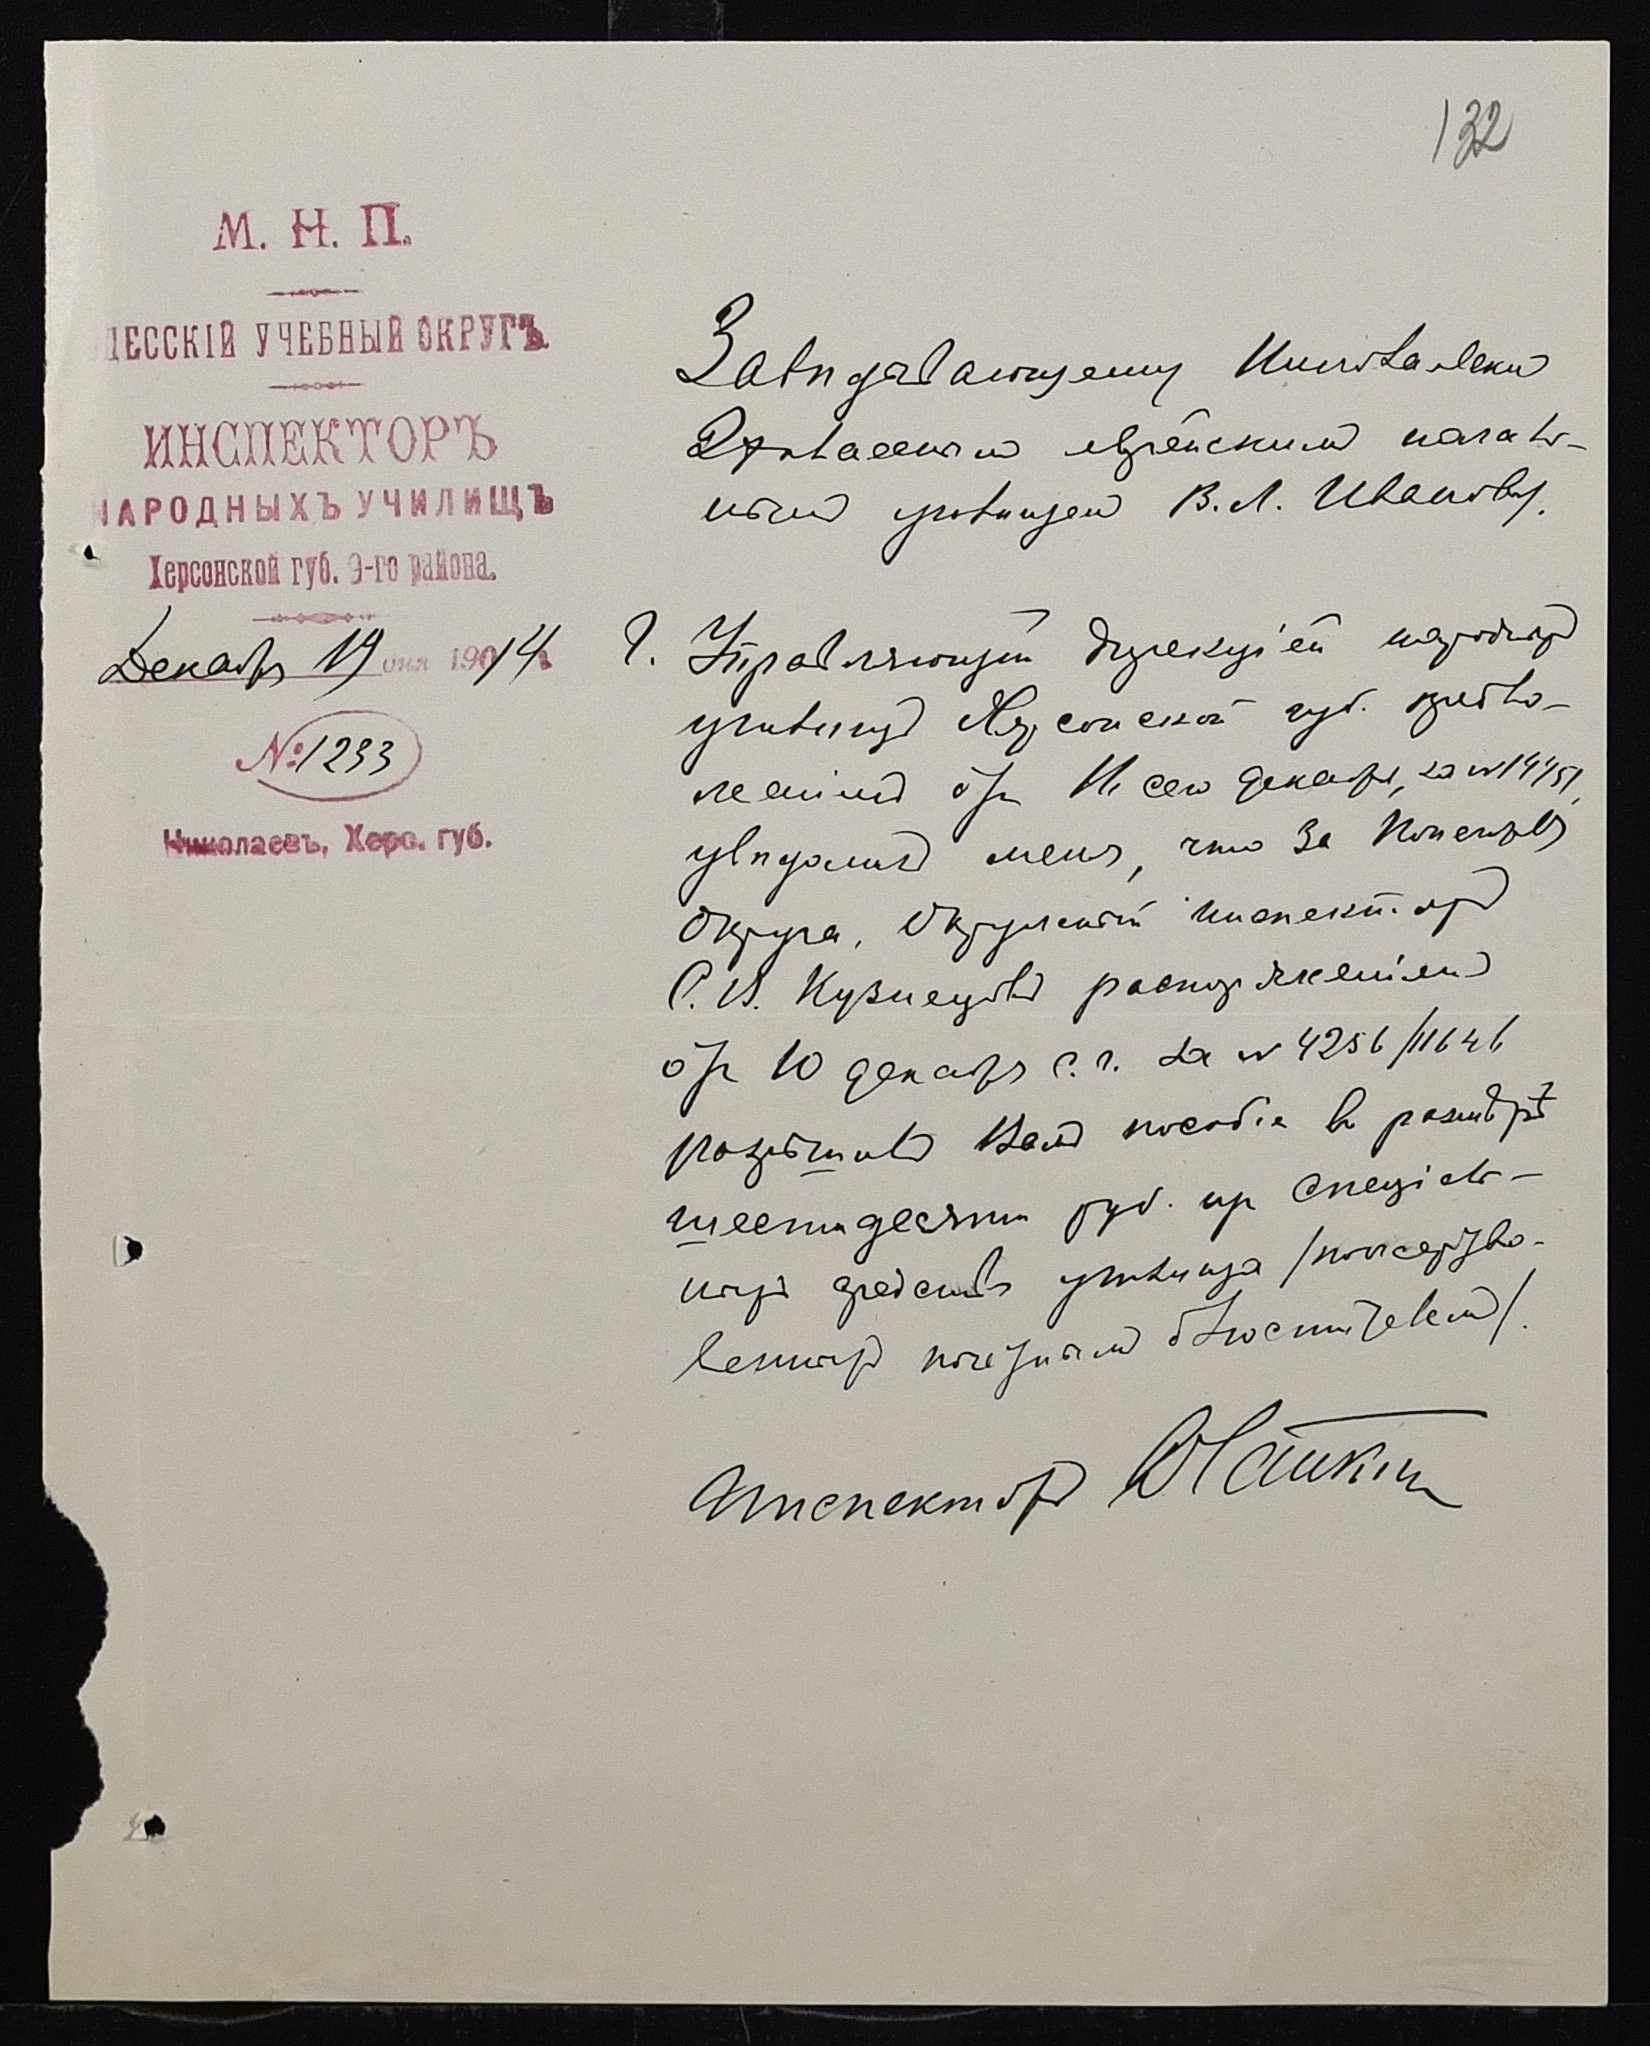 132
М. Н. П.
ДЕССКІЙ УЧЕБНЫЙ ОКРУГЪ.
ИНСПЕКТОРЪ
НАРОДНЫХЪ УЧИЛИЩЪ
Херсонской губ. 9-го района.
Декабря 19 дня 1914 г.
№ 1233
Николаевъ, Херс. губ.
Завѣдывающему Николаевскимъ
еврейскимъ началь-
нымъ училищемъ В. Л. Иванову.
Управляющій дирекціей народныхъ
училищъ Херсонской губ. предло-
женіемъ отъ сего декабря, за №
увѣдомилъ меня, что За Попечителя
Округа, Окружный Инспекторъ
С. Кузнецовъ распоряженіемъ
отъ 10 декабря с. г. за № 4256/11646
разрѣшилъ Вамъ пособіе въ размѣрѣ
шестидесяти руб. изъ спеціаль-
ныхъ средствъ училища /пожертво-
ванныхъ почетнымъ блюстителемъ/.
Инспекторъ